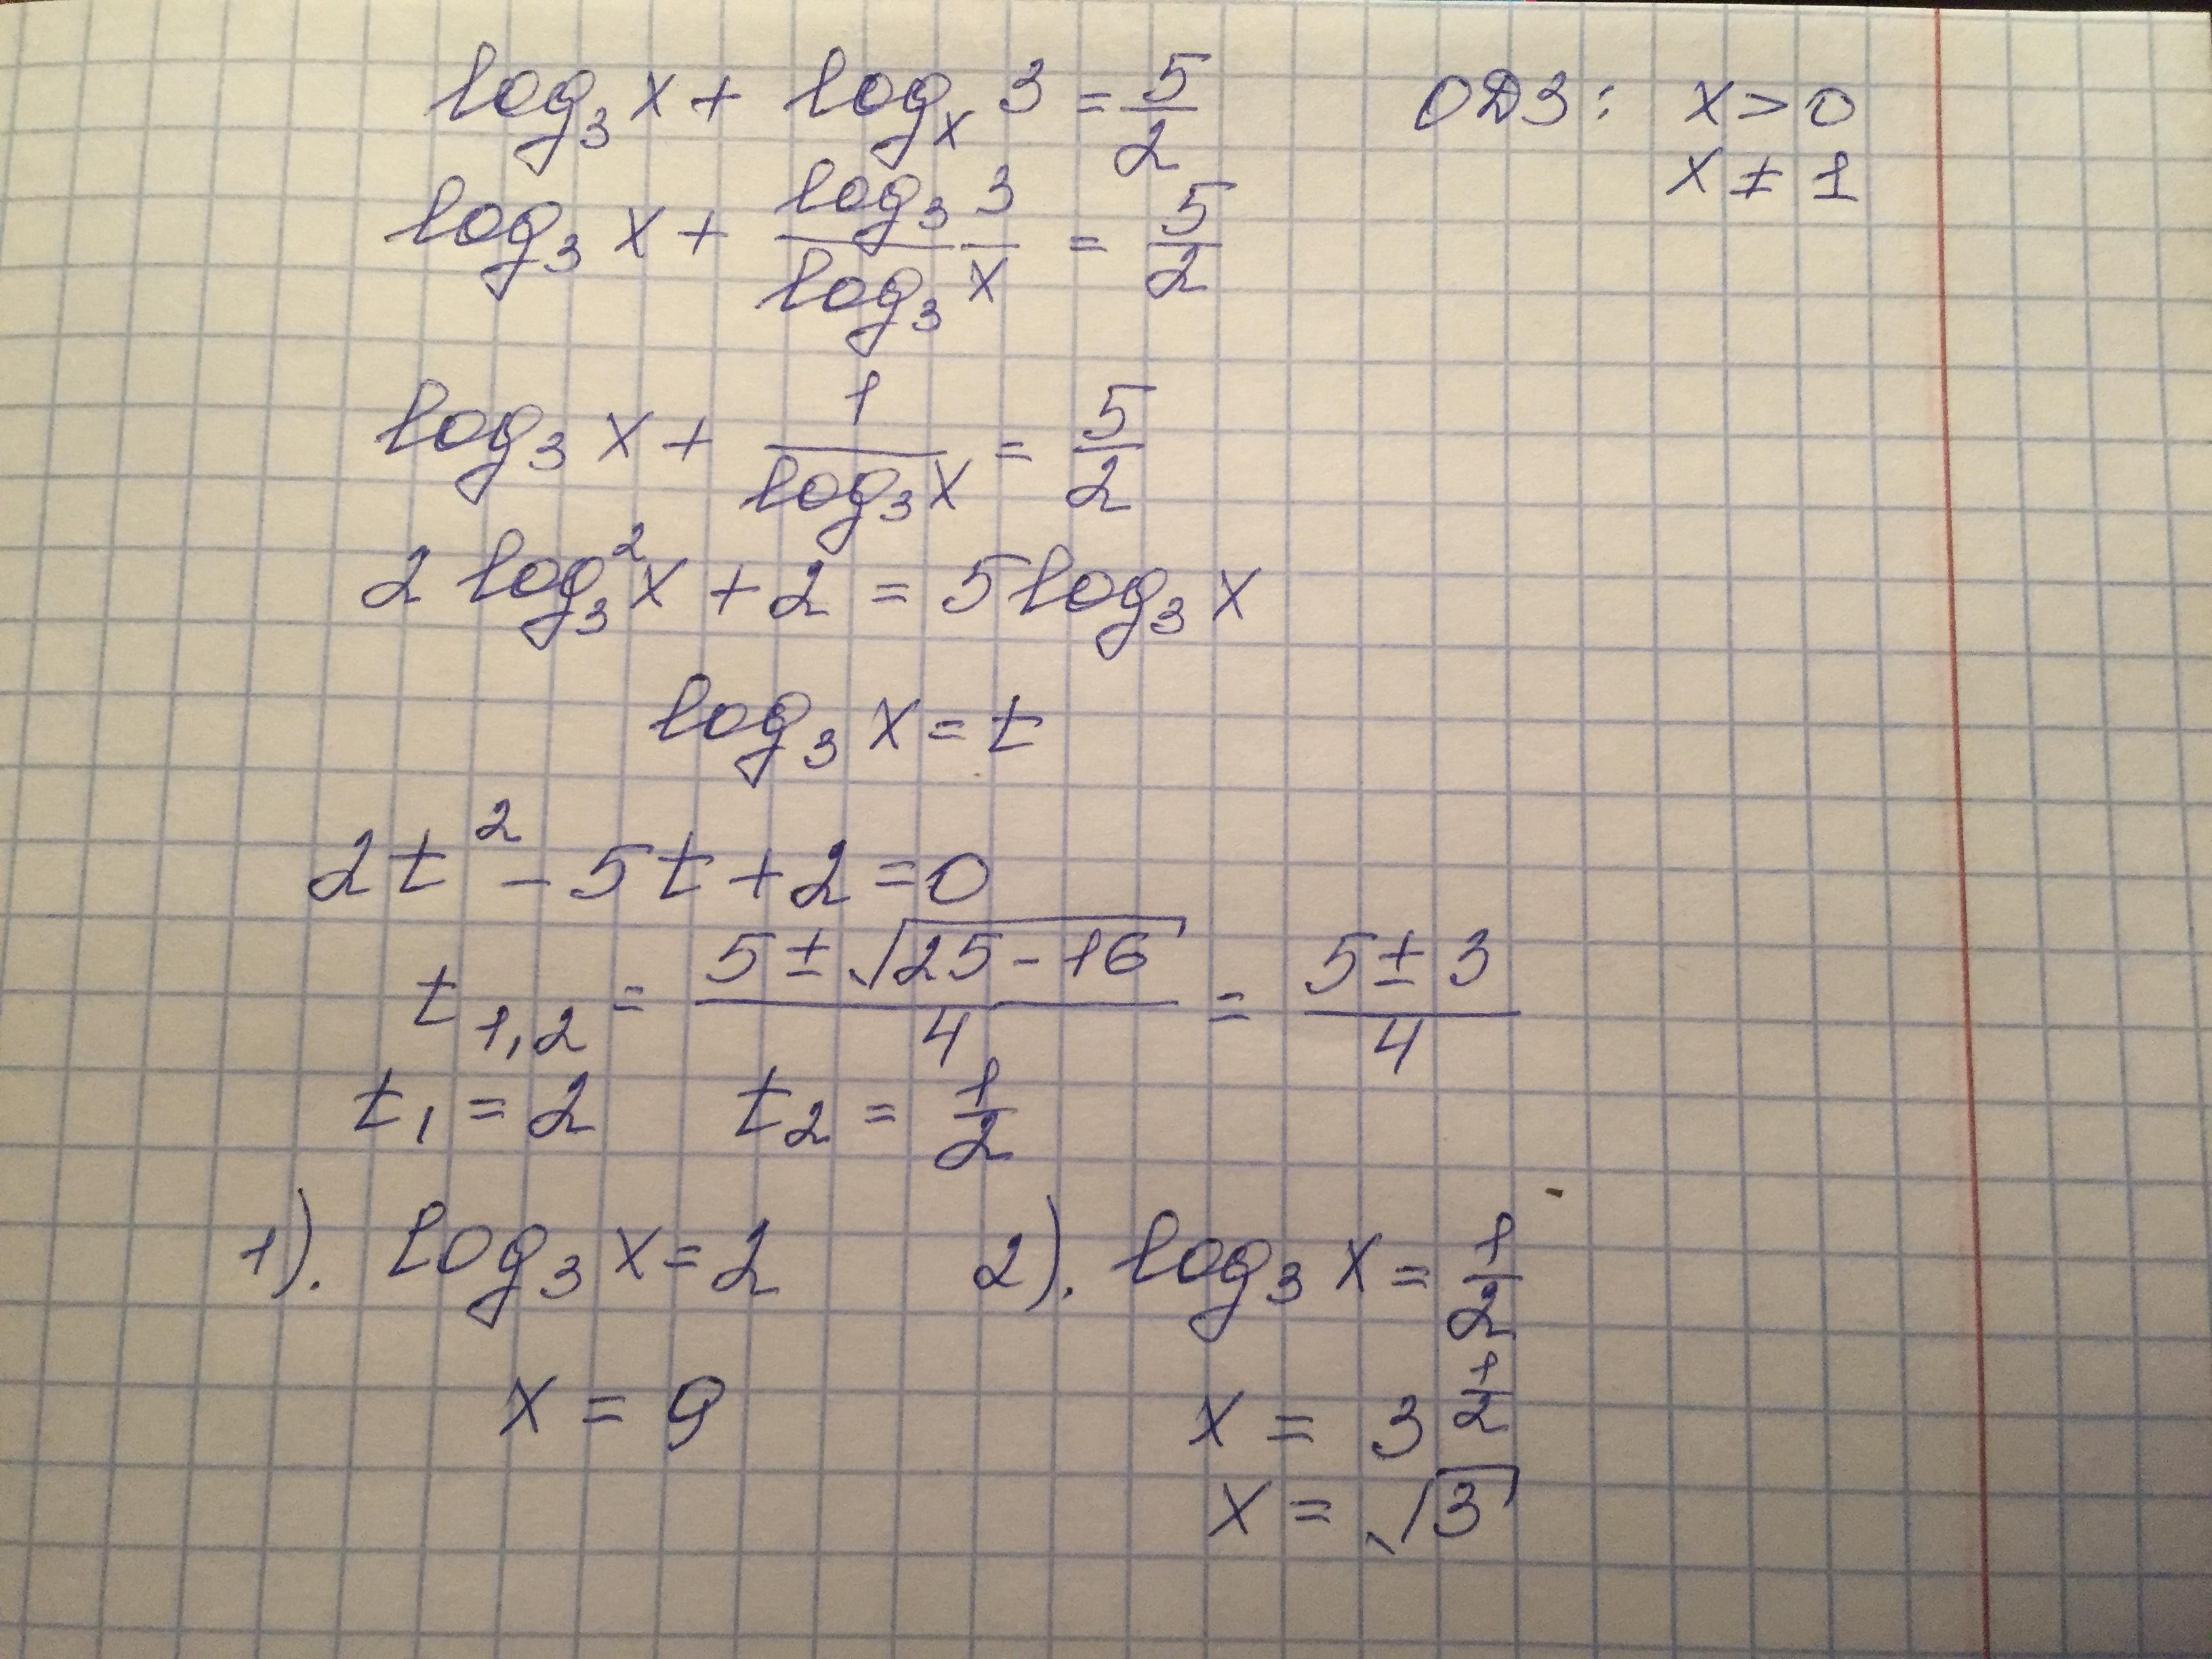 log₃ x + logₓ 3 = 5/2 ОДЗ: x > 0
x ≠ 1
log₃ x + (log₃ 3)/(log₃ x) = 5/2
log₃ x + 1/(log₃ x) = 5/2
2 log₃² x + 2 = 5 log₃ x
log₃ x = t
2t² - 5t + 2 = 0
t₁,₂ = (5 ± √(25 - 16))/4 = (5 ± 3)/4
t₁ = 2 t₂ = 1/2
1). log₃ x = 2 2). log₃ x = 1/2
x = 9 x = 3^(1/2)
x = √3